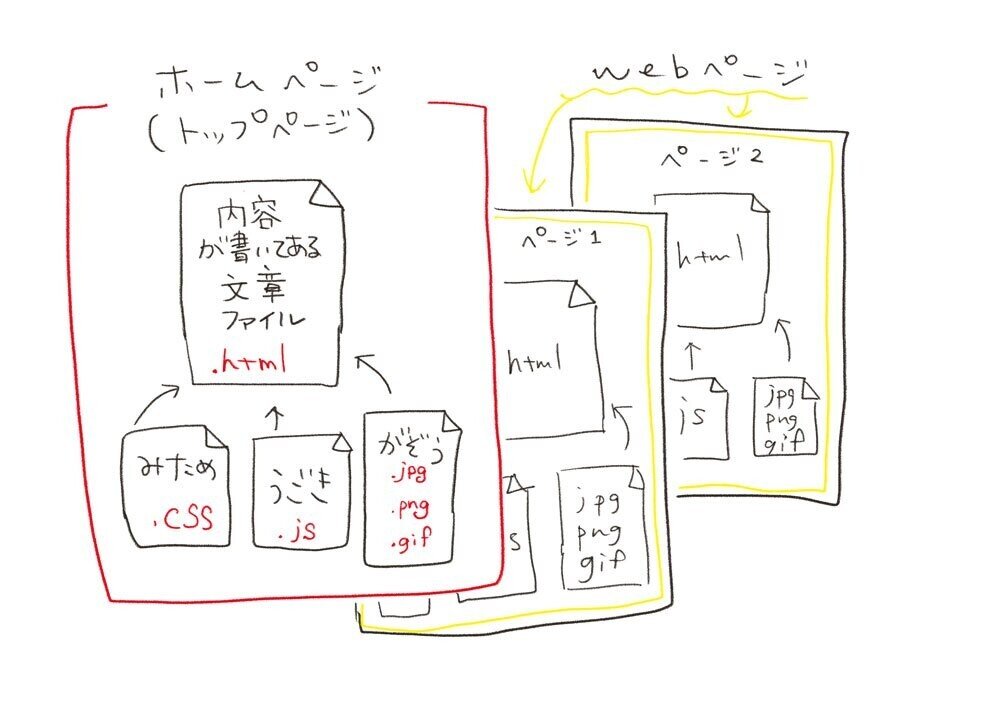 ホームページ
(トップページ)
内容
が書いてある
文章
ファイル
.html
みため
.css
うごき
.js
がぞう
.jpg
.png
.gif
webページ
ページ1
html
s
jpg
png
gif
ページ2
html
js
jpg
png
gif